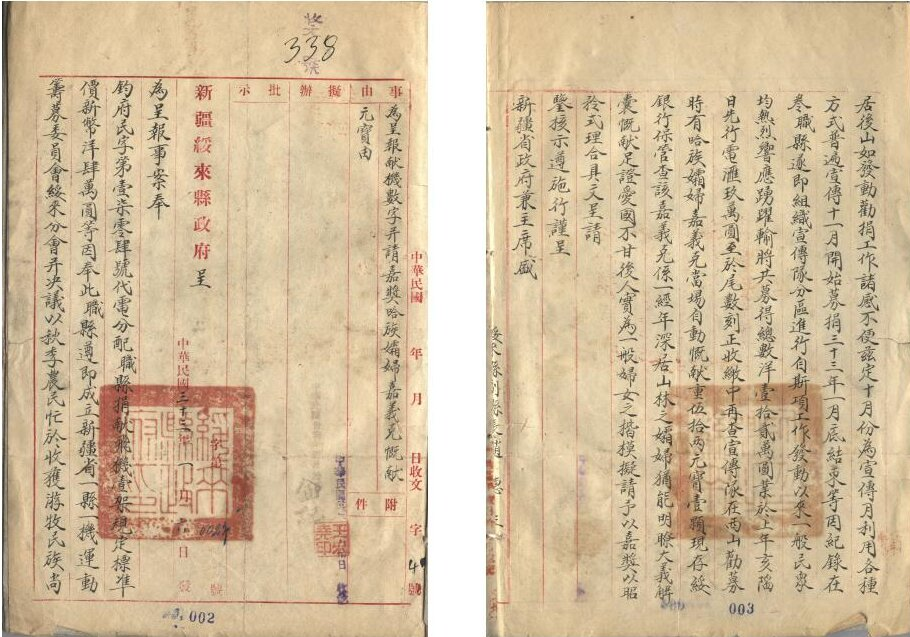 338
事由
擬辦
批示
為呈報献機數字并請嘉奬哈族孀婦嘉義克慨献
元寶由
附件
中華民國 年 月 日收文 字 號
新疆綏來縣政府 呈
中華民國三十三年 月 日 發
為呈報事案奉
鈞府民字第壹柒零肆號代電分配職縣捐献飛機壹架規定標準
價新幣洋肆萬圓等因奉此職縣遵即成立新疆省一縣一機運動
籌募委員會綏來分會并決議以秋季農民忙於收獲游牧民族尚
002
居後山如發動勸捐工作諸感不便玆定十月份為宣傳月利用各種
方式普遍宣傳十一月開始募捐三十三年一月底結束等因紀錄在
卷職縣遂即組織宣傳隊分區進行自斯項工作發動以來一般民衆
均熱烈響應踴躍輸將共募得總數洋壹拾貳萬圓業於上年亥陷
日先行電滙玖萬圓至於尾數刻正收繳中再查宣傳隊在西山勸募
時有哈族孀婦嘉義克當場自動慨献重伍拾両元寶壹顆現存綏
銀行保管查該嘉義克係一經年深居山林之孀婦猶能明瞭大義解
囊慨献足證愛國不甘後人實為一般婦女之楷模擬請予以嘉奬以昭
矜式理合具文呈請
鑒核示遵施行謹呈
新疆省政府兼主席盛
003